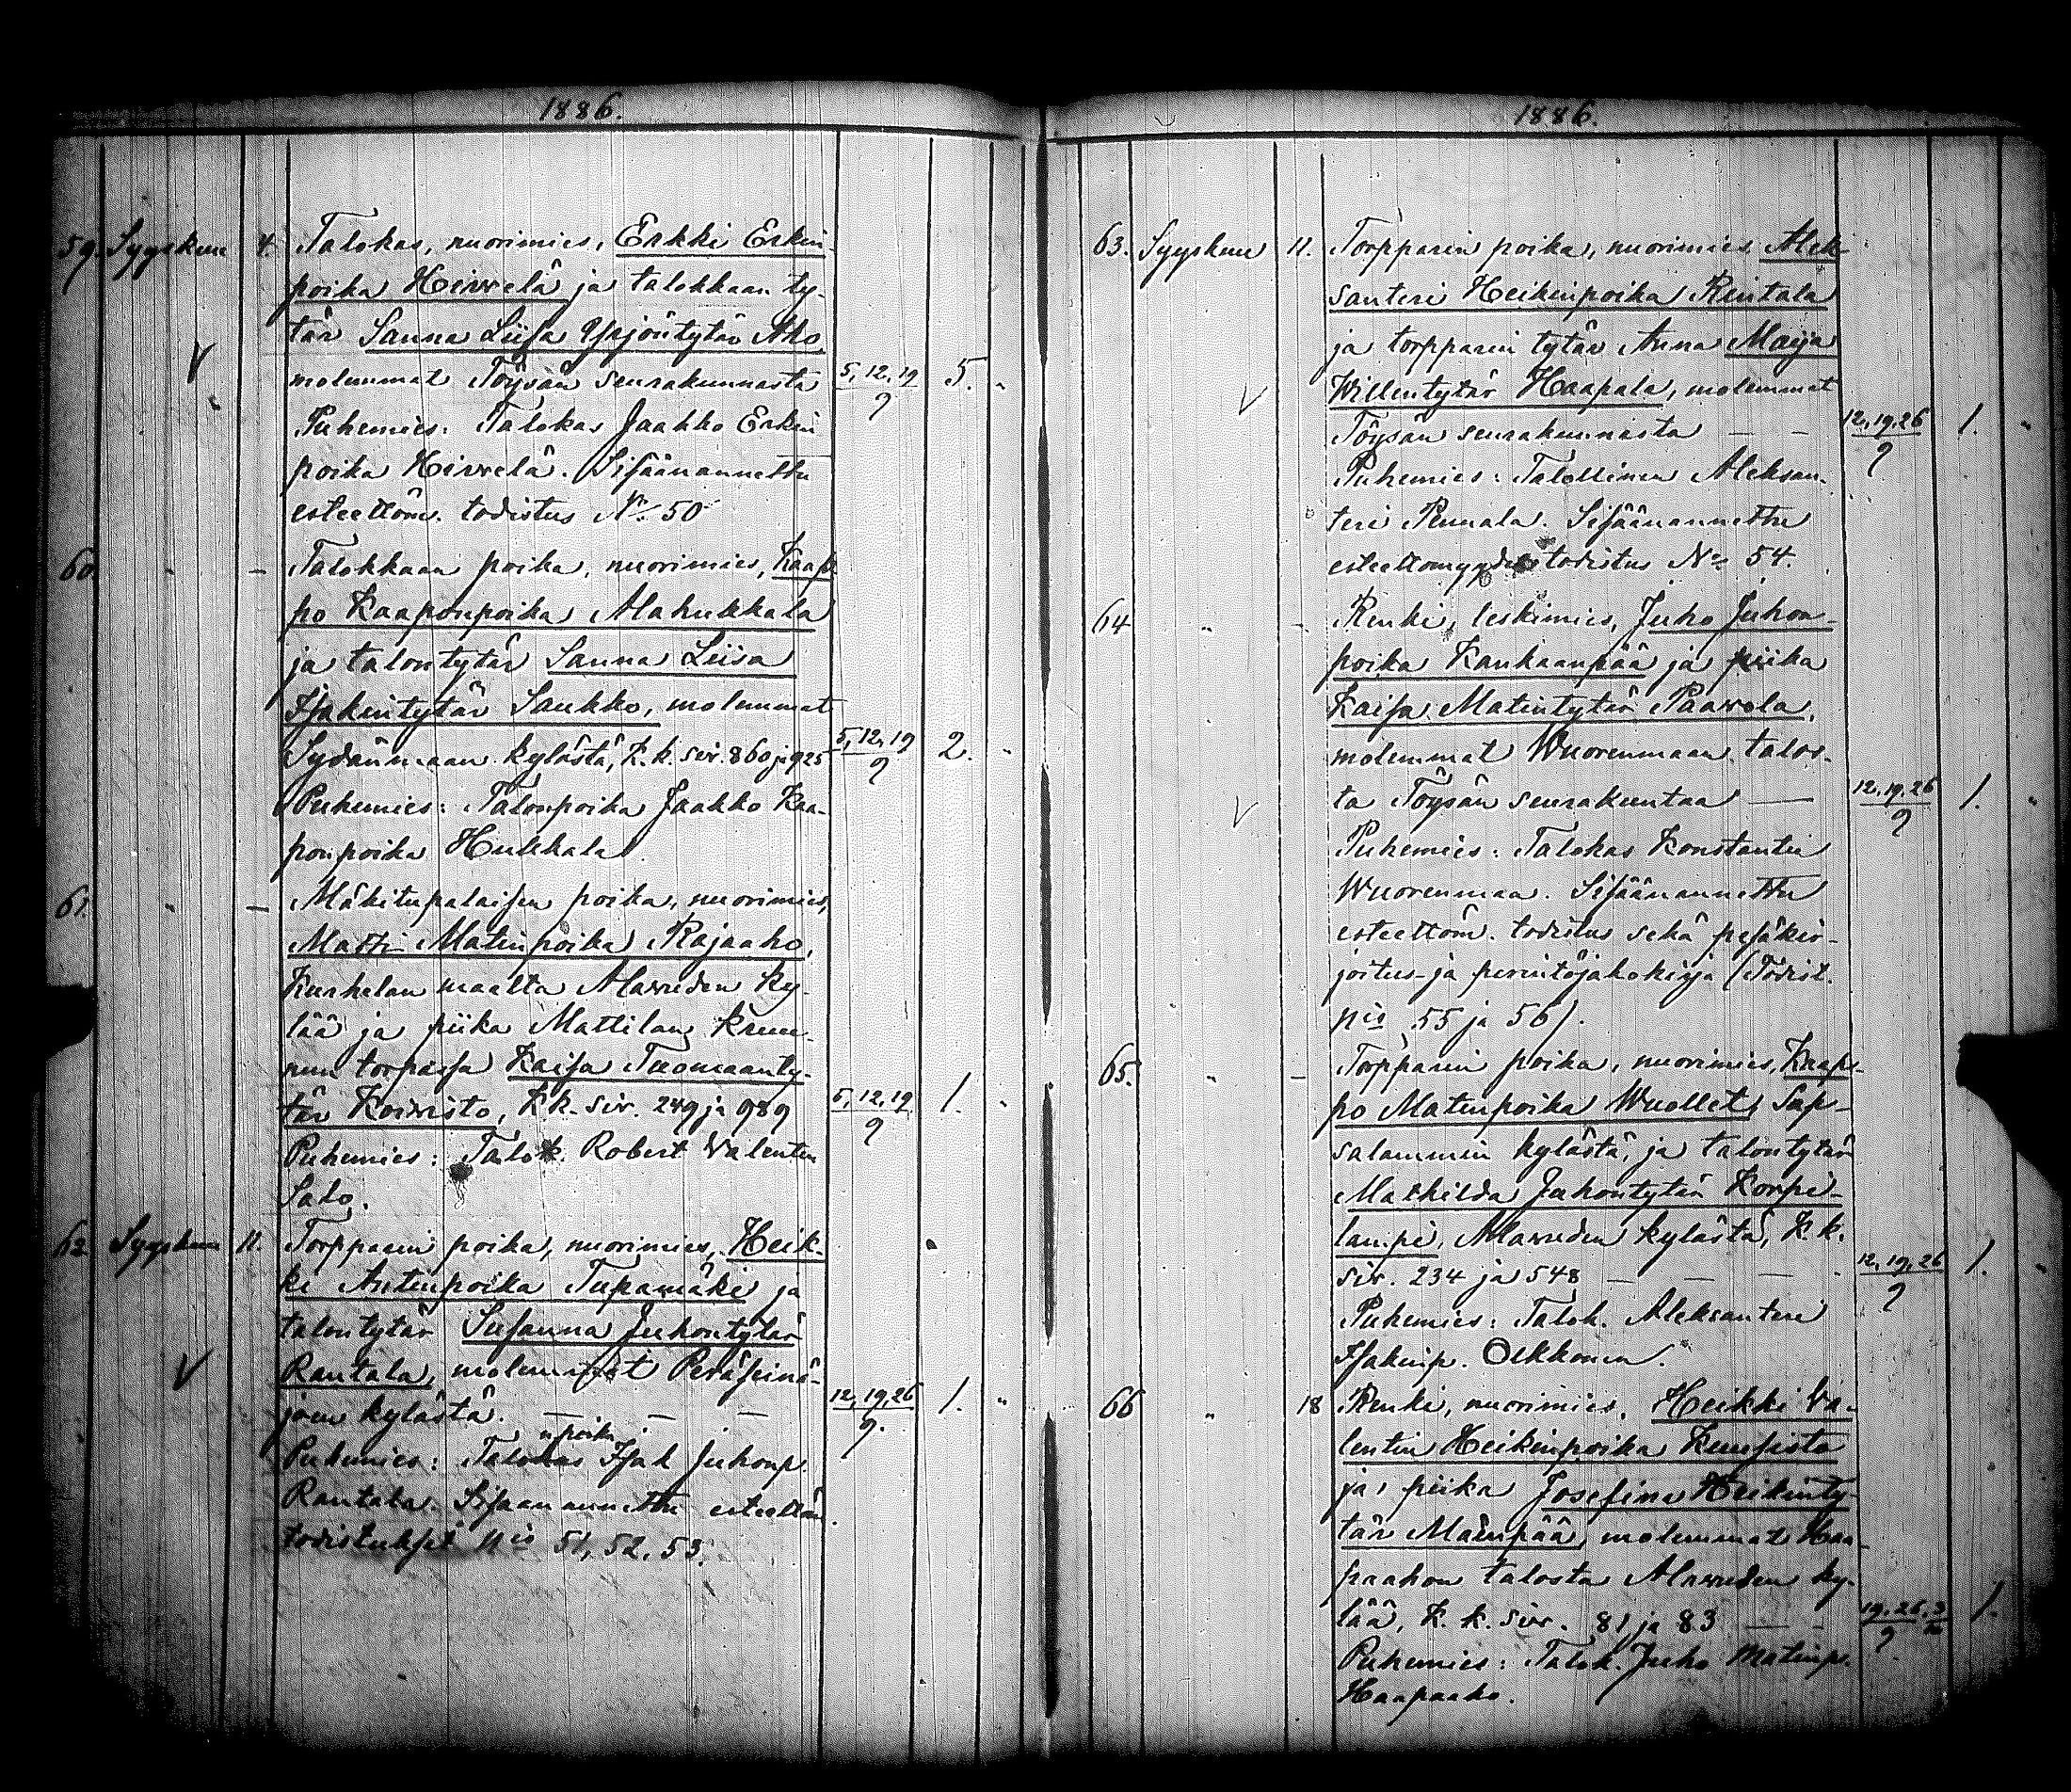 1886.
59. Syyskuu 4. Talokas, nuorimies, Erkki Erkin-
poika Heiwelä ja talokkaan ty-
tär Sanna Liisa Yrjöntytär Aho
molemmat Töysän seurakunnasta 5, 12, 19/9 5. "
Puhemies: Talokas Jaakko Erkin
poika Heiwelä. Sisäänannettu
esteettöm. todistus No 50
60 " – Talokkaan poika, nuorimies, Kaap-
po Kaaponpoika Alahukkala
ja talontytär Sanna Liisa
Isakintytär Saukko, molemmat
Sydänmaan kylästä, K. k. siv. 860 ja 925 5, 12, 19/9 2. "
Puhemies: Talonpoika Jaakko Kaa-
ponpoika Hukkala.
61. " – Mäkitupalaisen poika, nuorimies,
Matti Matinpoika Rajaaho,
Kuahalan maalta Alawuden ky-
lää ja piika Mattilan kruu-
nun torpassa Kaisa Tuomaanty-
tär Koiwisto, K k. siv. 249 ja 989 5, 12, 19/9 1. "
Puhemies: Talok. Robert Valentin
Salo.
62 Syyskuu 11. Torpparin poika, nuorimies, Heik-
ki Antinpoika Tupamäki ja
talontytär Susanna Juhontytär
Rantala, molemmat Peräseinä-
joen kylästä. – – – 12, 19, 26/9. 1. "
npoika
Puhemies: Talokas Isak Juhonp.
Rantala. Sisäänannettu esteettöm.
todistukset No 51, 52, 53.
1886.
63. Syyskuu 11. Torpparin poika, nuorimies Alek
santeri Heikinpoika Rintala
ja torpparin tytär Anna Maija
Willentytär Haapala, molemmat
Töysän seurakunnasta – – 12, 19, 26/9 1. "
Puhemies: Talollinen Aleksan-
teri Pennala. Sisäänannettu
esteettömyyden todistus No 54.
64 " – Renki, leskimies, Juho Juhon-
poika Kankaanpää ja piika
Kaisa Matintytär Paawola,
molemmat Wuorenmaan talos-
ta Töysän seurakuntaa — 12, 19, 26/9 1. "
Puhemies: Talokas Konstantin
Wuorenmaa. Sisäänannettu
esteettöm. todistus sekä pesäkir-
joitus- ja perintöjakokirja (Todist.
nis 55 ja 56).
65. " – Torpparin poika, nuorimies, Kaap-
po Matinpoika Wuollet, Sap-
salammin kylästä, ja talontytär
Mathilda Juhontytär Korpe-
lampi, Alawuden kylästä, K. k.
siv. 234 ja 548 – – – 12, 19, 26/9 1. "
Puhemies: Talok. Aleksanteri
Isakinp. Oikkonen.
66 " 18 Renki, nuorimies, Heikki Va-
lentin Heikinpoika Kuusisto
ja piika Josefina Heikinty-
tär Mäenpää, molemmat Haa-
paahon talosta Alawuden ky-
lää, K. k. siv. 81 ja 83 — 19, 26/9, 3/10 1.
Puhemies: Talok. Juho Matinp.
Haapaaho.